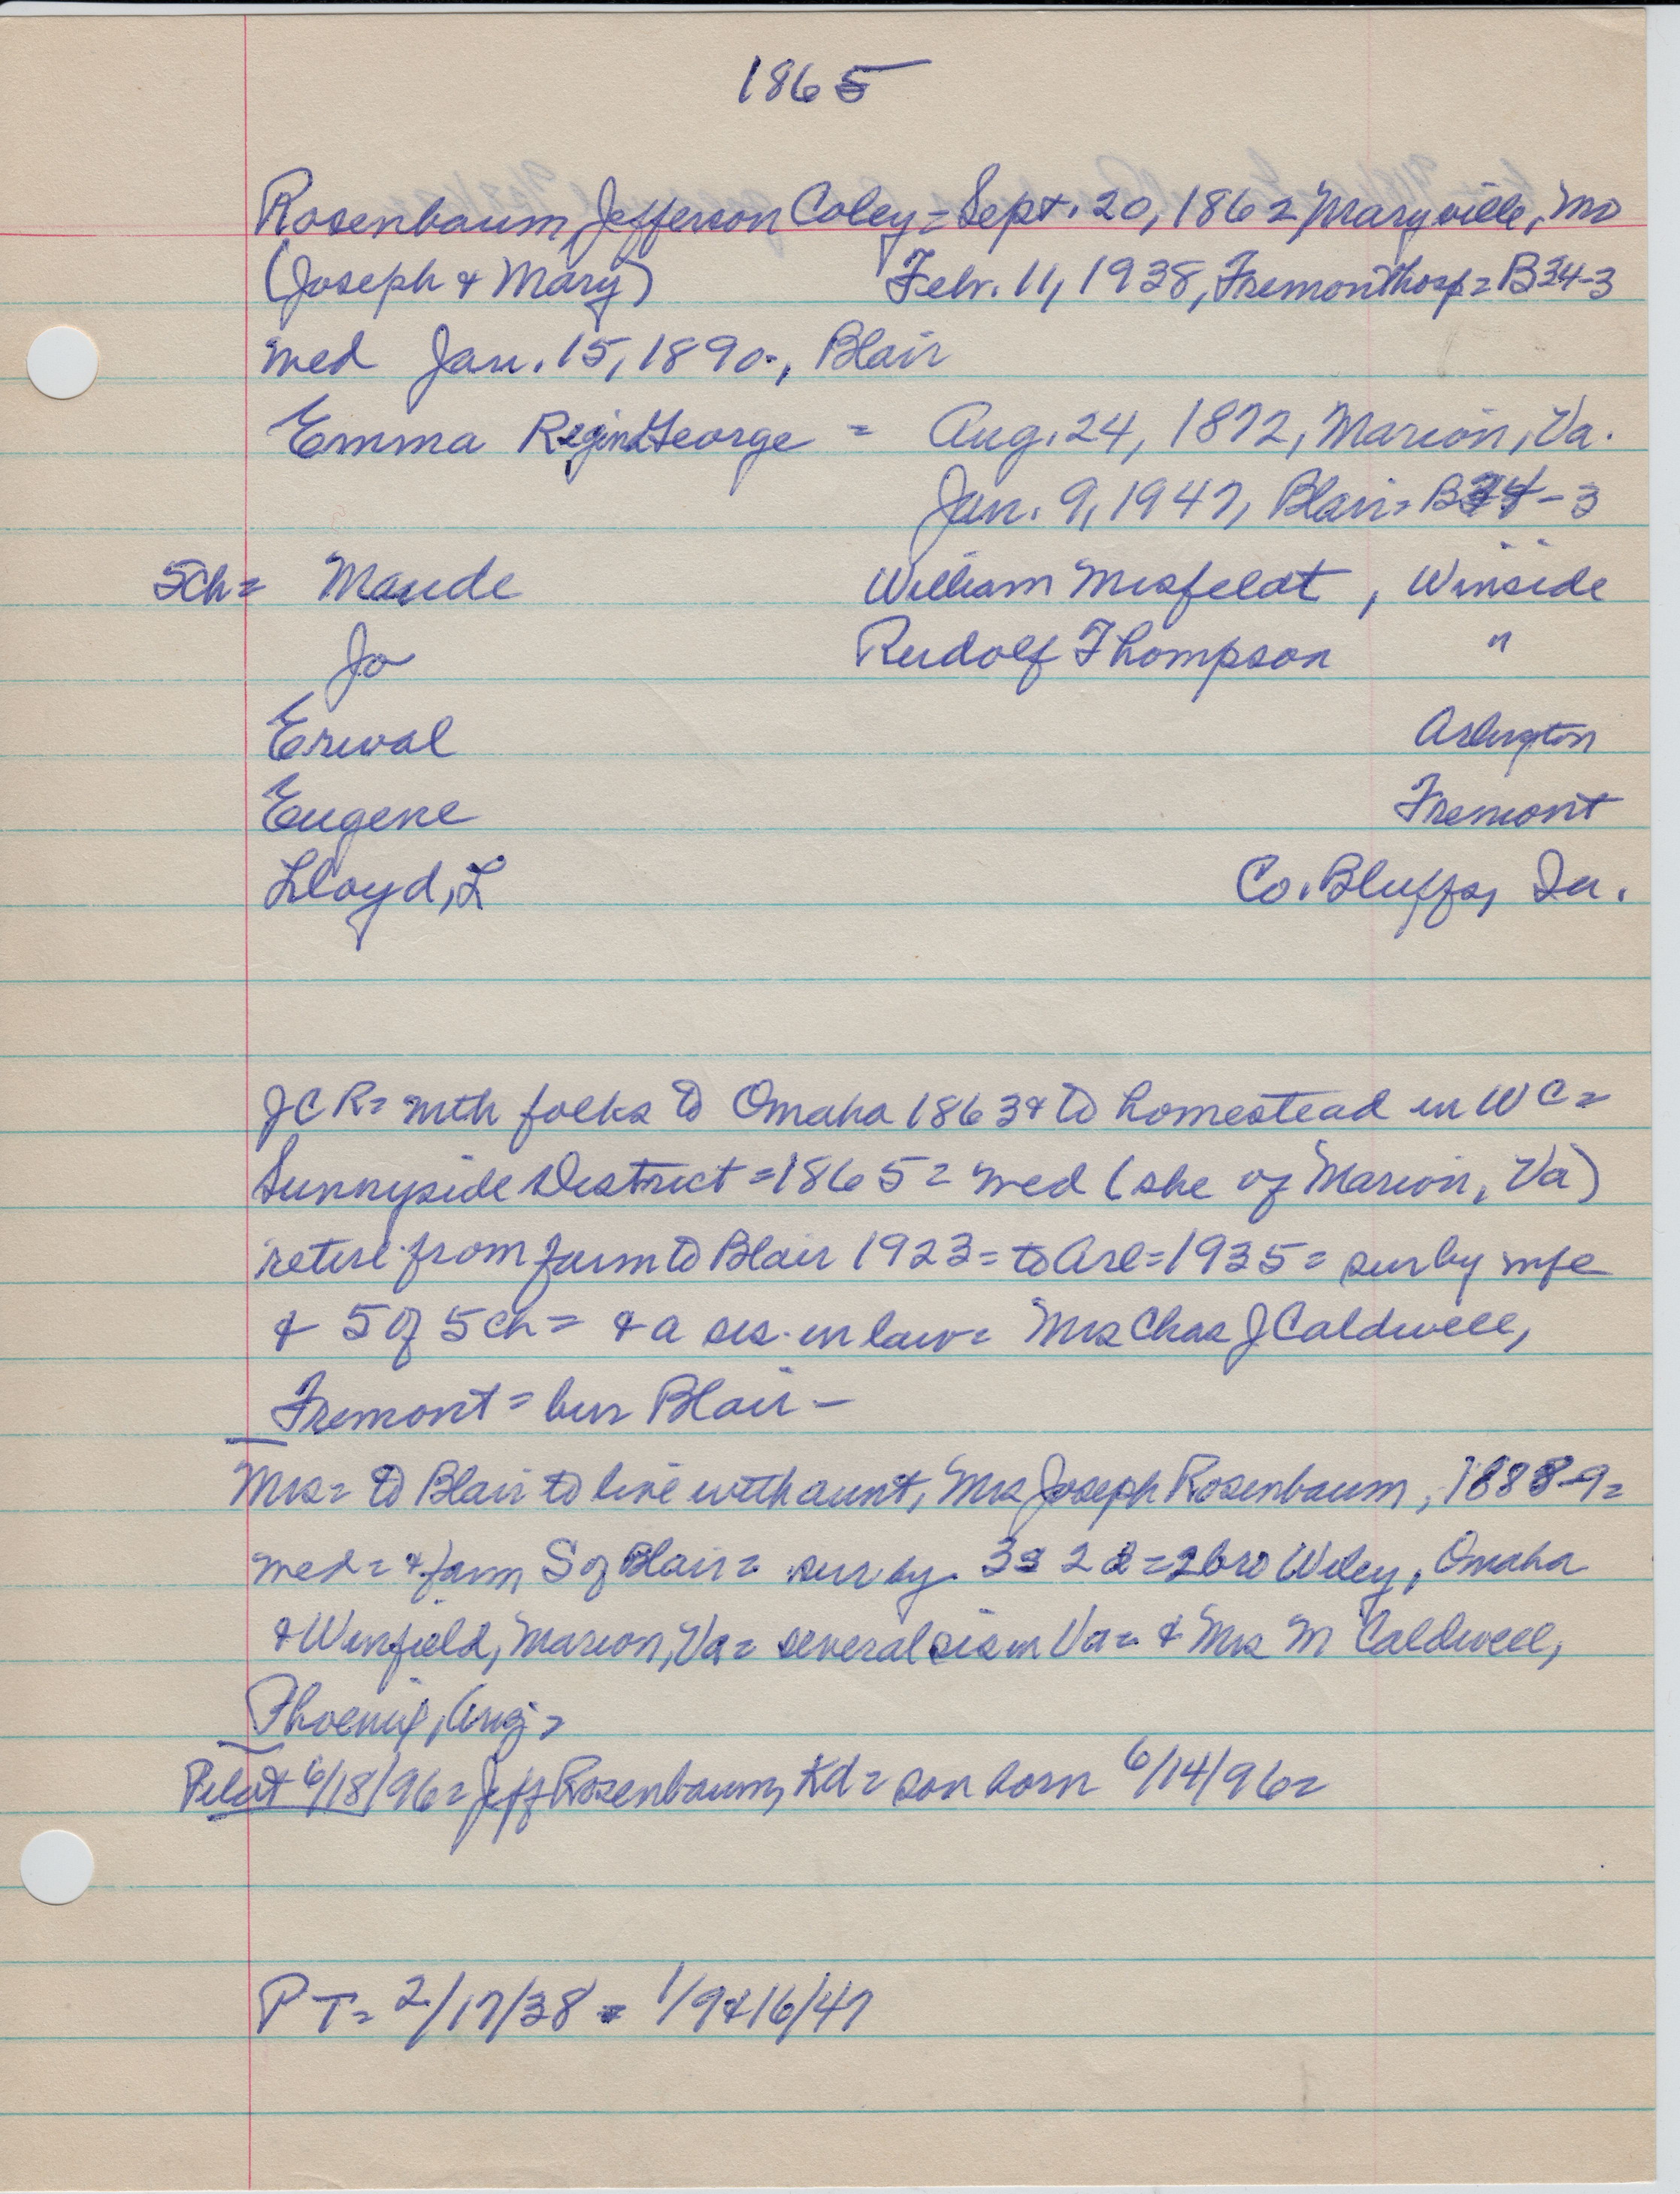 1865
Rosenbaum, Jefferson Coley = Sept. 20, 1862 Maryville, Mo
(Joseph & Mary) Febr. 11, 1938, Fremont hosp = B34-3
med Jan. 15, 1890-, Blair
Emma Regina George = Aug. 24, 1872, Marion, Va.
Jan. 9, 1947, Blair = B34-3
5ch = Maude William Misfeldt, Winside
Jo Rudolf Thompson "
Erwal Arlington
Eugene Fremont
Lloyd, L Co. Bluffs, Ia.
JCR = with folks to Omaha 1863 & to homestead in WC =
Sunnyside District = 1865 = med (she of Marion, Va)
retire from farm to Blair 1923 = to Arl = 1935 = sur by wife
& 5 of 5 ch = & a sis-in law = Mrs Chas J Caldwell,
Fremont = bur Blair -
Mrs = to Blair to live with aunt, Mrs Joseph Rosenbaum, 1888-9 =
med = & farm S of Blair = sur by 3s 2d = 2 bro Wiley, Omaha
& Winfield, Marion, Va = several sis in Va = & Mrs M Caldwell,
Phoenix, Ariz =
Pilot 6/18/96 = Jeff Rosenbaum, Kd = son born 6/14/96 =
PT = 2/17/38 = 1/9 & 16/47